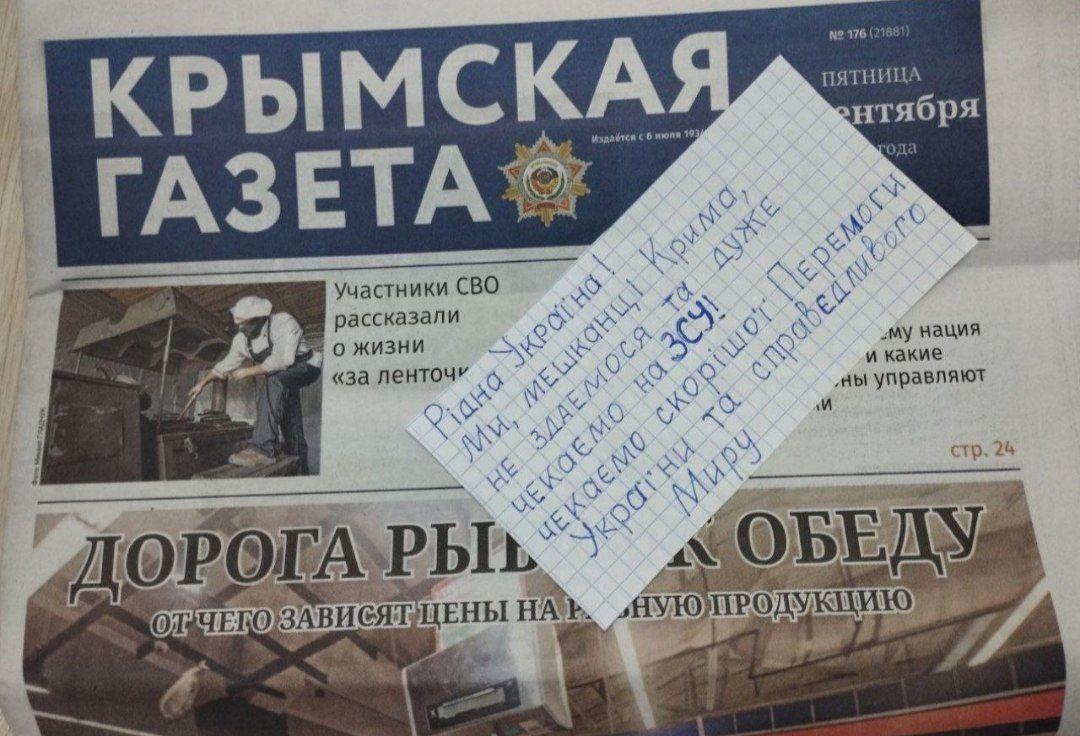 КРЫМСКАЯ
ГАЗЕТА
№ 176 (21881)
ПЯТНИЦА
Издаётся с 6 июля
Участники СВО
рассказали
о жизни
«за
нация
и какие
управляют
стр. 24
Рідна Україна!
Ми, мешканці Крима,
не здаємося та дуже
чекаємо на ЗСУ!
чекаємо скорішої Перемоги
України та справедливого
Миру
ДОРОГА К ОБЕДУ
ОТ ЧЕГО ЗАВИСЯТ ЦЕНЫ НА ПРОДУКЦИЮ